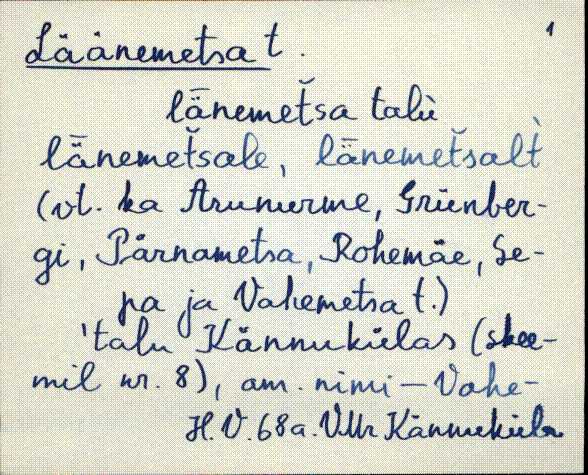 1
Läänemetsa t.
lǟnemet̆sa talù
lǟnemet̆sale, lǟnemet̆salt̀
(vt. ka Arunurme, Grünber-
gi, Pärnametsa, Rohemäe, Se-
pa ja Vahemetsa t.)
'talu Kännukülas (skee-
mil nr. 8), am. nimi – Vahe-
H.V. 68a. V.Mr Kännuküla